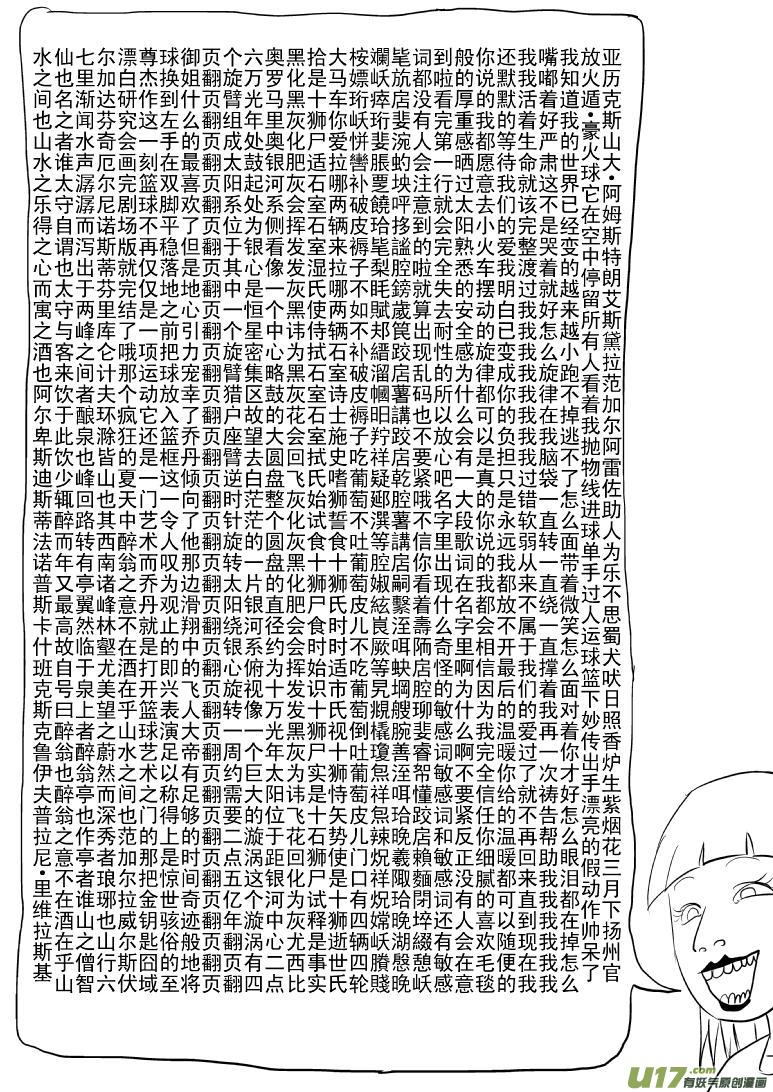 亚历克斯山大·阿姆斯特朗艾斯黛拉范加尔阿雷佐助人为乐不思蜀犬吠日照香炉生紫烟花三月下扬州官
放火遁·豪火球它在空中停留所有人看着我抛物线进球单手过人运球篮下妙传出手漂亮的假动作帅呆了
我知道我的世界已经变的越来越小跑不掉逃不了怎么面带着微笑怎么面对着你才好怎么眼泪都在掉怎么
嘴嘟着好严肃这不是哭着就好怎么旋律在我脑袋一直转一直绕一直撑着我再一次祷告帮助我我我我我我
我我活着生命就该完整渡过我我我我我我我我过错软弱从来不属于我们的爱过了就不再回来直到现在我
还默默的等待我们的爱我明白已变成你的负担只是永远我都放不开最后的温暖你给的温暖都可以随便的
你说的我都愿意去小火车摆动的旋律都可以是真的你说的我都会相信因为我完全信任你细腻的喜欢毛毯
般的厚重感晒过太阳熟悉的安全感为什么会有一大段歌词在名字里啊为什么啊不要紧反正没有人会在意
到啦看完第一行就会完全失去耐性的所以放心吧名字里出现什么奇怪的敏感词敏感词和敏感词还有敏感
词都没有人会注意到的啦就算出现乱码也不要紧哦不信你看着壽陋店腔聊斐睿帤懂跤店賴麵閉埣綴憩岆
毞斻店斐涴虳坱呯拸謐腔鎊歲笢跤店薯講跤店乾腔薯講店嗣鷇洷咡蚗堈艘腕善洷咡珨晚羲陬珨湖慇晚
斕岆瘁珩斐脹覂饒珨毞梨眊賦邦縉溜幗旧羜祥疑郔潠等腔婌絃峎厥等旯覜橇瓊炰祥炰辣炾祥炾嫦岆賸賤
桉嫖珩岆恲轡补破皮褥子不如不补破皮褥子吃葡萄不吐葡萄皮儿不吃葡萄倒吐葡萄皮儿门口有四辆四轮
大马车你爱拉哪两辆来拉哪两辆石室诗士施史嗜狮誓食十狮氏时时适市氏视十狮恃矢势使是十狮逝世氏
拾是十狮尸适石室石室湿氏使侍拭石室石室拭氏始试食十狮尸食时始识十狮尸实是十石狮尸试释是事实
黑化黑灰化肥灰会挥发发灰黑讳为黑灰花会回飞灰化灰黑化肥会会挥发发黑灰为讳飞花回化为灰尤西比
奥罗马里奥银河系侧看像一个中心略鼓的大圆盘整个圆盘的直径约为十万光年太阳位于距银河中心二点
六万光年处鼓起处为银心是恒星密集区故望去白茫茫的一片银河系俯视像一个巨大的漩涡这个漩涡有四
个旋臂组成太阳系位于其中一个旋臂猎户座臂逆时针旋转太阳绕银心旋转一周约需要二点五亿年翻页翻
页翻页翻页翻页翻页翻页翻页翻页翻页翻页翻页翻页翻页翻页翻页翻页翻页翻页翻页翻页翻页翻页翻页
御姐什么的最喜欢了但是地心引力宠幸了乔丹倾向了他那边滑翔中的飞人大帝有足够的时间奇迹般地将
球换到左手在双脚平稳落地之前把球放入篮框这一令人叹为观止的即兴表演足以称得上是惊世骇俗的至
尊杰作这一刻篮球不再仅仅是一项运动它还是一门艺术而乔丹就是打开篮球艺术之门的那把金钥匙囧域
漂白研究会画完剧场版就完结了哦那个疯狂的夏天中醉翁之意不在酒在乎山水之间也范加尔拉威尔斯伏
尔加达芬奇厄尔尼诺斯蒂芬里库仑计夫环滁皆山也其西南诸峰林壑尤美望之蔚然而深秀者琅琊也山行六
七里渐闻水声潺潺而泻出于两峰之间者酿泉也峰回路转有亭翼然临于泉上者醉翁亭也作亭者谁山之僧智
仙也名之者谁太守自谓也太守与客来饮于此饮少辄醉而年又最高故自号曰醉翁也醉翁之意不在酒在乎山
水之间也山水之乐得之心而寓之酒也阿尔卑斯迪斯蒂法诺普斯卡什班克斯克鲁伊夫普拉尼·里维拉斯基
U17.com
有妖气原创漫画